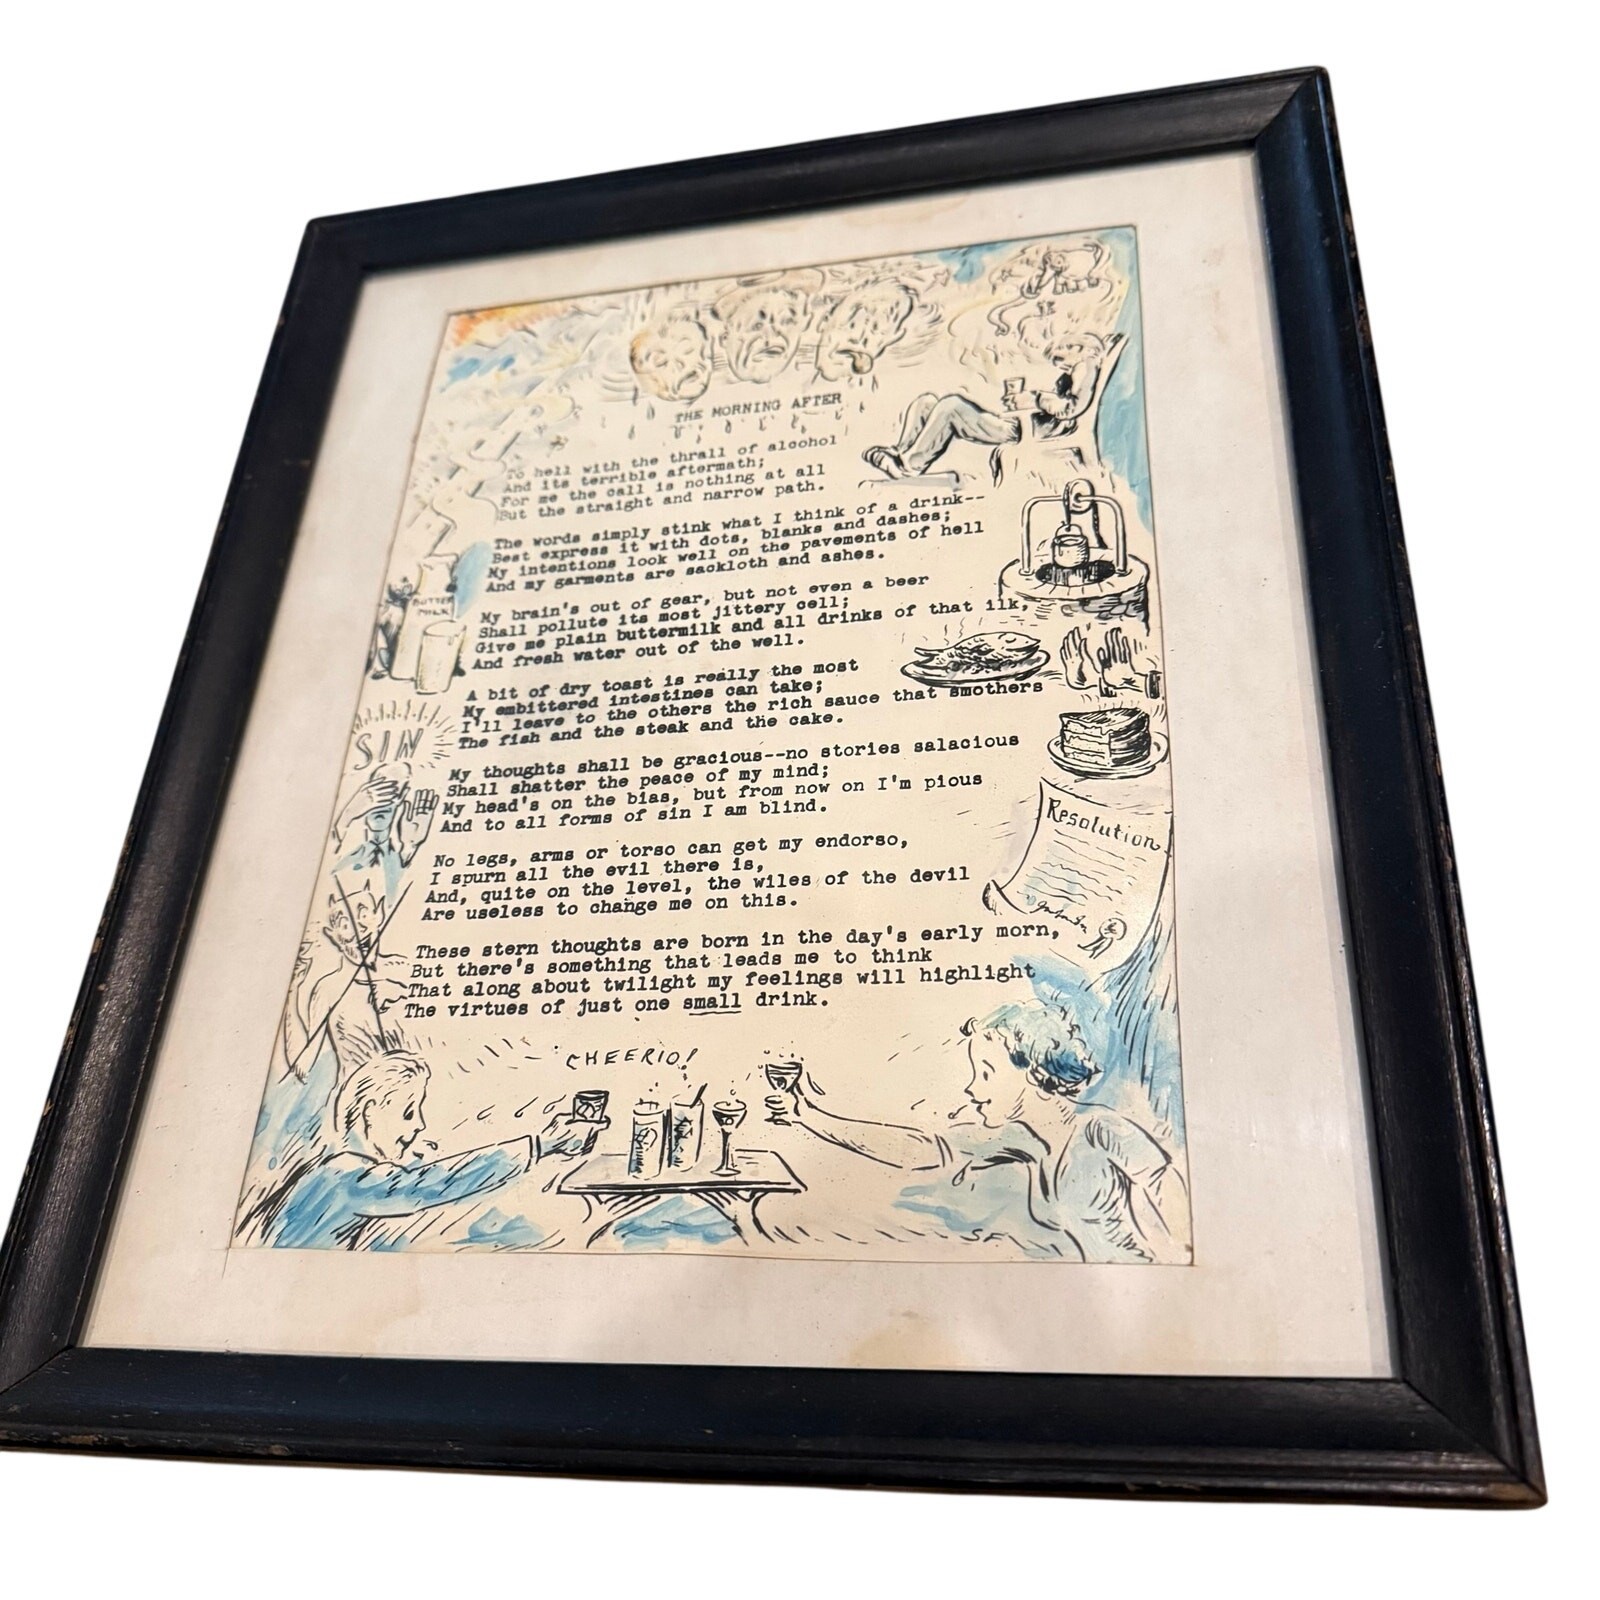 THE MORNING AFTER
To hell with the thrall of alcohol
And its terrible aftermath;
For me the call is nothing at all
But the straight and narrow path.
The words simply stink what I think of a drink--
Best express it with dots, blanks and dashes;
My intentions look well on the pavements of hell
And my garments are sackloth and ashes.
My brain's out of gear, but not even a beer
Shall pollute its most jittery cell;
Give me plain buttermilk and all drinks of that ilk,
And fresh water out of the well.
BUTTER
MILK
A bit of dry toast is really the most
My embittered intestines can take;
I'll leave to the others the rich sauce that smothers
The fish and the steak and the cake.
SIN
My thoughts shall be gracious--no stories salacious
Shall shatter the peace of my mind;
My head's on the bias, but from now on I'm pious
And to all forms of sin I am blind.
Resolution
No legs, arms or torso can get my endorso,
I spurn all the evil there is,
And, quite on the level, the wiles of the devil
Are useless to change me on this.
These stern thoughts are born in the day's early morn,
But there's something that leads me to think
That along about twilight my feelings will highlight
The virtues of just one small drink.
CHEERIO!